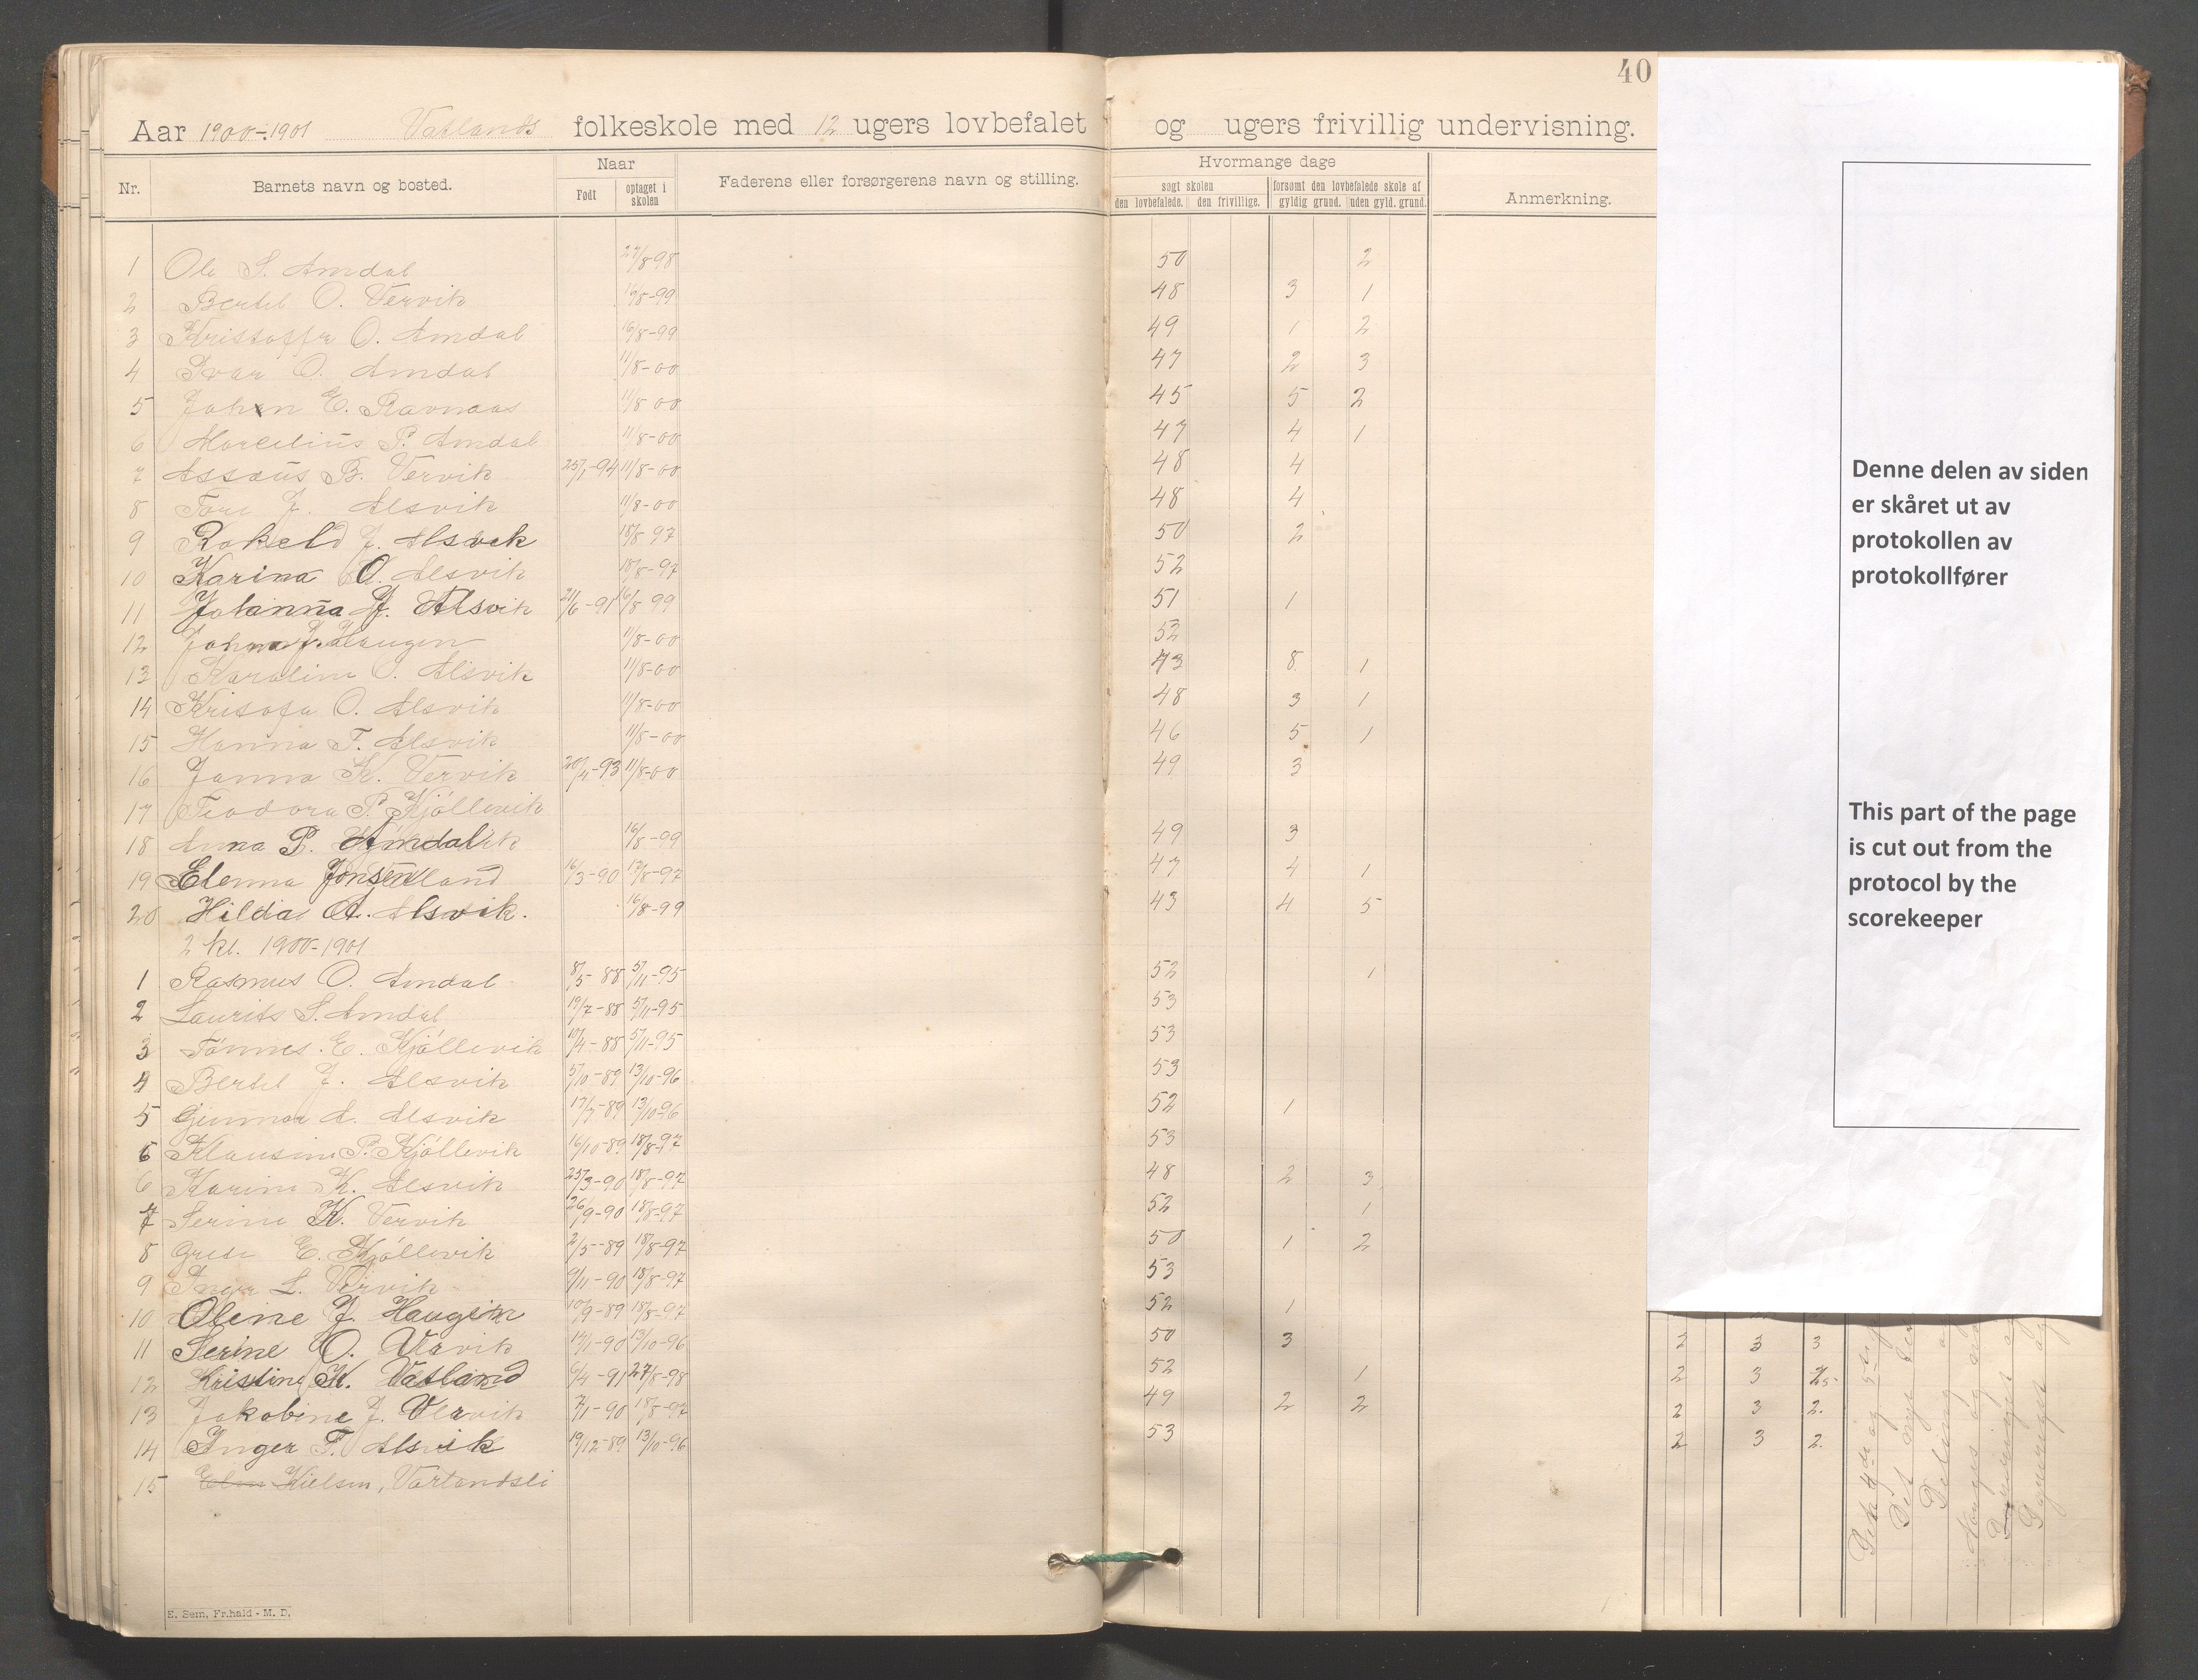 40
Aar 1900-1901 Vatlands folkeskole med 12 ugers lovbefalet og ugers frivillig undervisning.
Nr. Barnets navn og bosted. Naar Født optaget i skolen Faderens eller forsørgerens navn og stilling. Hvormange dage søgt skolen den lovbefalede. den frivillige. forsømt den lovbefalede skole af gyldig grund. uden gyld. grund. Anmerkning.
1 Ole S. Amdal 27/8-98 50 2
2 Bertel O. Vervik 16/8-99 48 3 1
3 Kristoffer O. Amdal 16/8-99 49 1 2
4 Ivar O. Amdal 11/8-00 47 2 3
5 Johan E. Ravnaas 11/8-00 45 5 2
6 Marcelius P. Amdal 11/8-00 47 4 1
7 Assaus B. Vervik 25/1-94 11/8-00 48 4
8 Tore J. Alsvik 11/8-00 48 4
9 Rakeld J. Alsvik 18/8-97 50 2
10 Karina O. Alsvik 18/8-97 52
11 Johanna J. Alsvik 21/6-91 16/8 99 51 1
12 Johna J. Haugen 11/8-00 52
13 Karoline O. Alsvik 11/8-00 43 8 1
14 Krisofa O. Alsvik 11/8-00 48 3 1
15 Hanna T. Alsvik 11/8-00 46 5 1
16 Janna K. Vervik 20/4-93 11/8-00 49 3
17 Teodora P. Kjøllevik
18 Anna P. Amdal 16/8-99 49 3
19 Elenna Jonsen 16/3-90 18/8-97 47 4 1
20 Hilda A. Alsvik. 16/8-99 43 4 5
2 kl. 1900-1901
1 Rasmus O. Amdal 8/5-88 5/11-95 52 1
2 Laurits S. Amdal 19/7-88 5/11-95 53
3 Tønnes. E. Kjøllevik 19/4-88 5/11-95 53
4 Bertel J. Alsvik 5/10-89 13/10-96 53
5 Gunnar A. Alsvik 17/7-89 13/10-96 52 1
6 Klausine P. Kjøllevik 16/10-89 18/8-97 53
6 Karine K. Alsvik 25/3-90 18/8-97 48 2 3
7 Serine K. Vervik 26/9-90 18/8-97 52 1
8 Grete E. Kjøllevik 2/5-89 18/8-97 50 1 2
9 Inger L. Vervik 9/11-90 18/8-97 53
10 Oline J. Haugen 10/9-89 18/8-97 52 1
11 Serine O. Vervik 14/1-90 13/10-96 50 3
12 Kristine K. Vatland 6/4-91 27/8-98 52 1
13 Jakobine J. Vervik 7/1-90 18/8-97 49 2 2
14 Inger T. Alsvik 19/12-89 13/10-96 53
15 Elen Nielsen, Vartandsli
E. Sem, Fr.hald - M. D.
Denne delen av siden
er skåret ut av
protokollen av
protokollfører
This part of the page
is cut out from the
protocol by the
scorekeeper
2 3 3
2 3
2 3 2.
2 3 2.